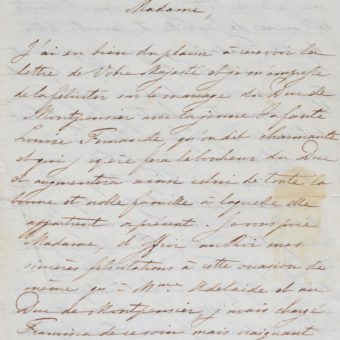 Madame,
J'ai eu bien du plaisir à recevoir la
lettre de Votre Majesté et je m'empresse
de la féliciter sur le mariage du Duc de
Montpensier avec la jeune Infante
Louise Fernande qu'on dit charmante
et qui j'espère fera le bonheur du Duc
et augmentera ainsi celui de toute la
bonne et noble famille à laquelle elle
appartient à présent. Je vous prie
Madame, d'offrir au Roi mes
sincères félicitations à cette occasion de
même qu'à Mme Adelaide et au
Duc de Montpensier, j'avais chargé
Francisca de ce soin mais craignant